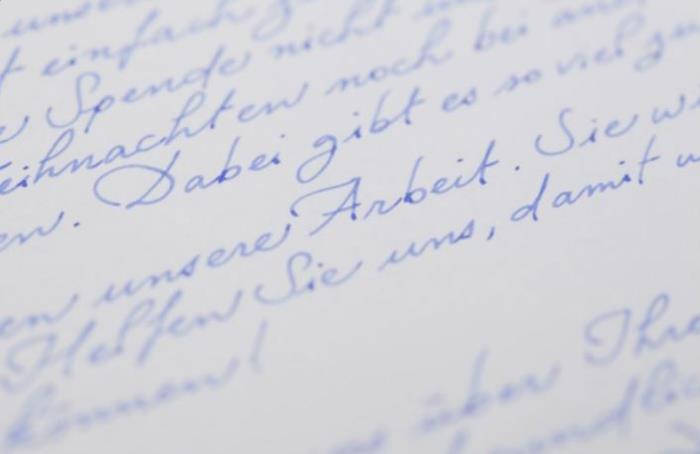 einfach
Spende nicht
Weihnachten noch bei
en. Dabei gibt es so viel zu
en unsere Arbeit. Sie
Helfen Sie uns, damit
können!
über Ihre